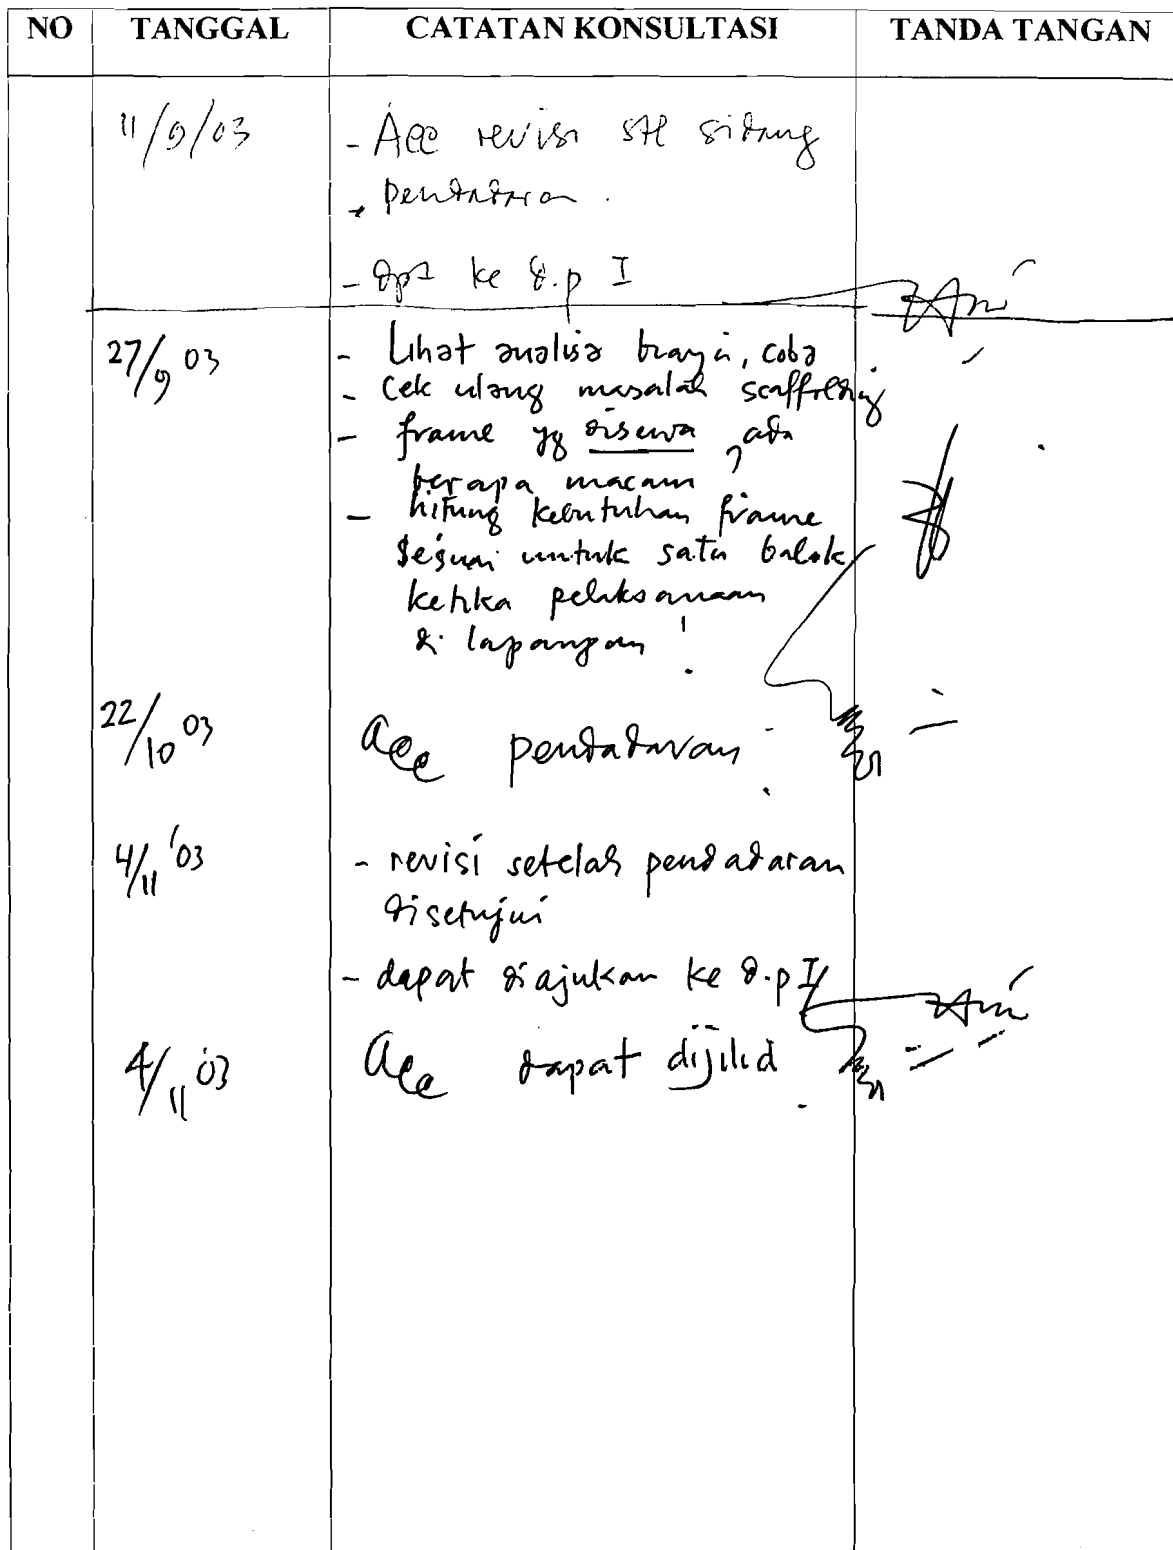 NO TANGGAL CATATAN KONSULTASI TANDA TANGAN
11/9/03 - Acc revisi stl sidang
pendadaran.
- dpt ke d.p I
27/9 03 - Lihat analisa biaya, coba
- Cek ulang masalah scaffolding
- frame yg disewa, ada
berapa macam
- hitung kebutuhan frame
sesuai untuk satu balok
ketika pelaksanaan
di lapangan!
22/10 03 acc pendadaran
4/11 '03 - revisi setelah pendadaran
disetujui
- dapat diajukan ke d.p I
4/11 '03 acc dapat dijilid